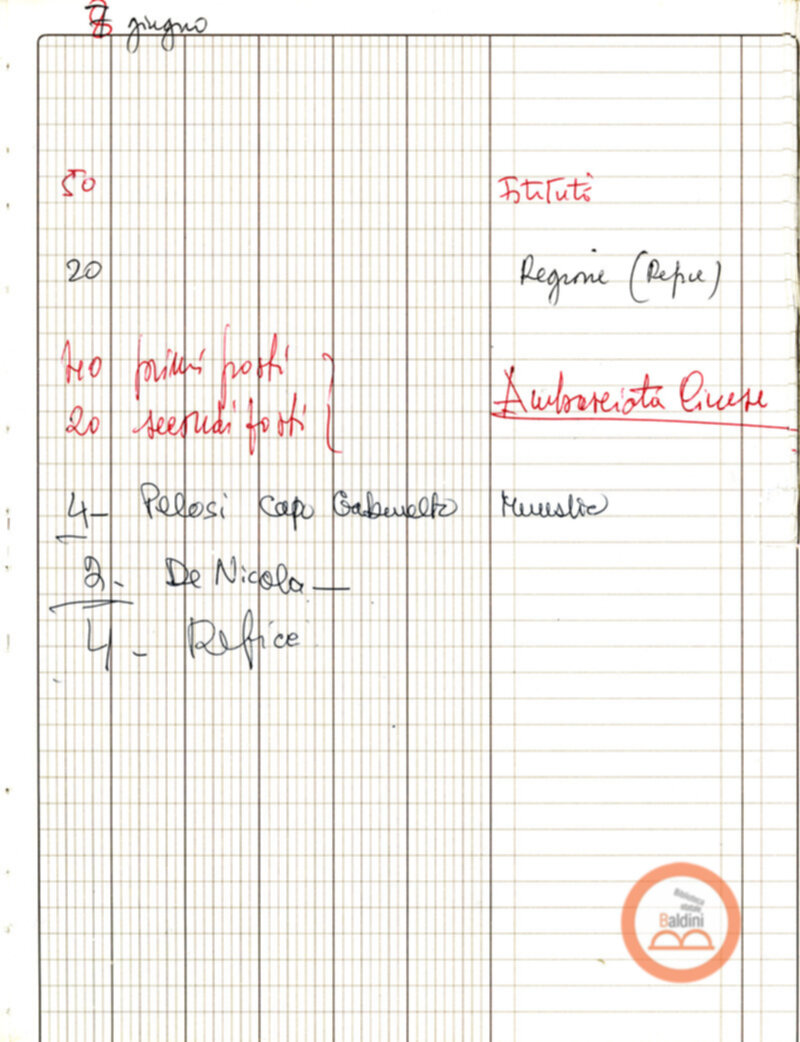 8 giugno
50 Istituto
20 Regione (Refice)
40 primi posti
20 secondi posti
Ambasciata Cinese
4- Pelosi Capo Gabinetto Ministro
2- De Nicola —
4 - Refice
Biblioteca
statale
Baldini